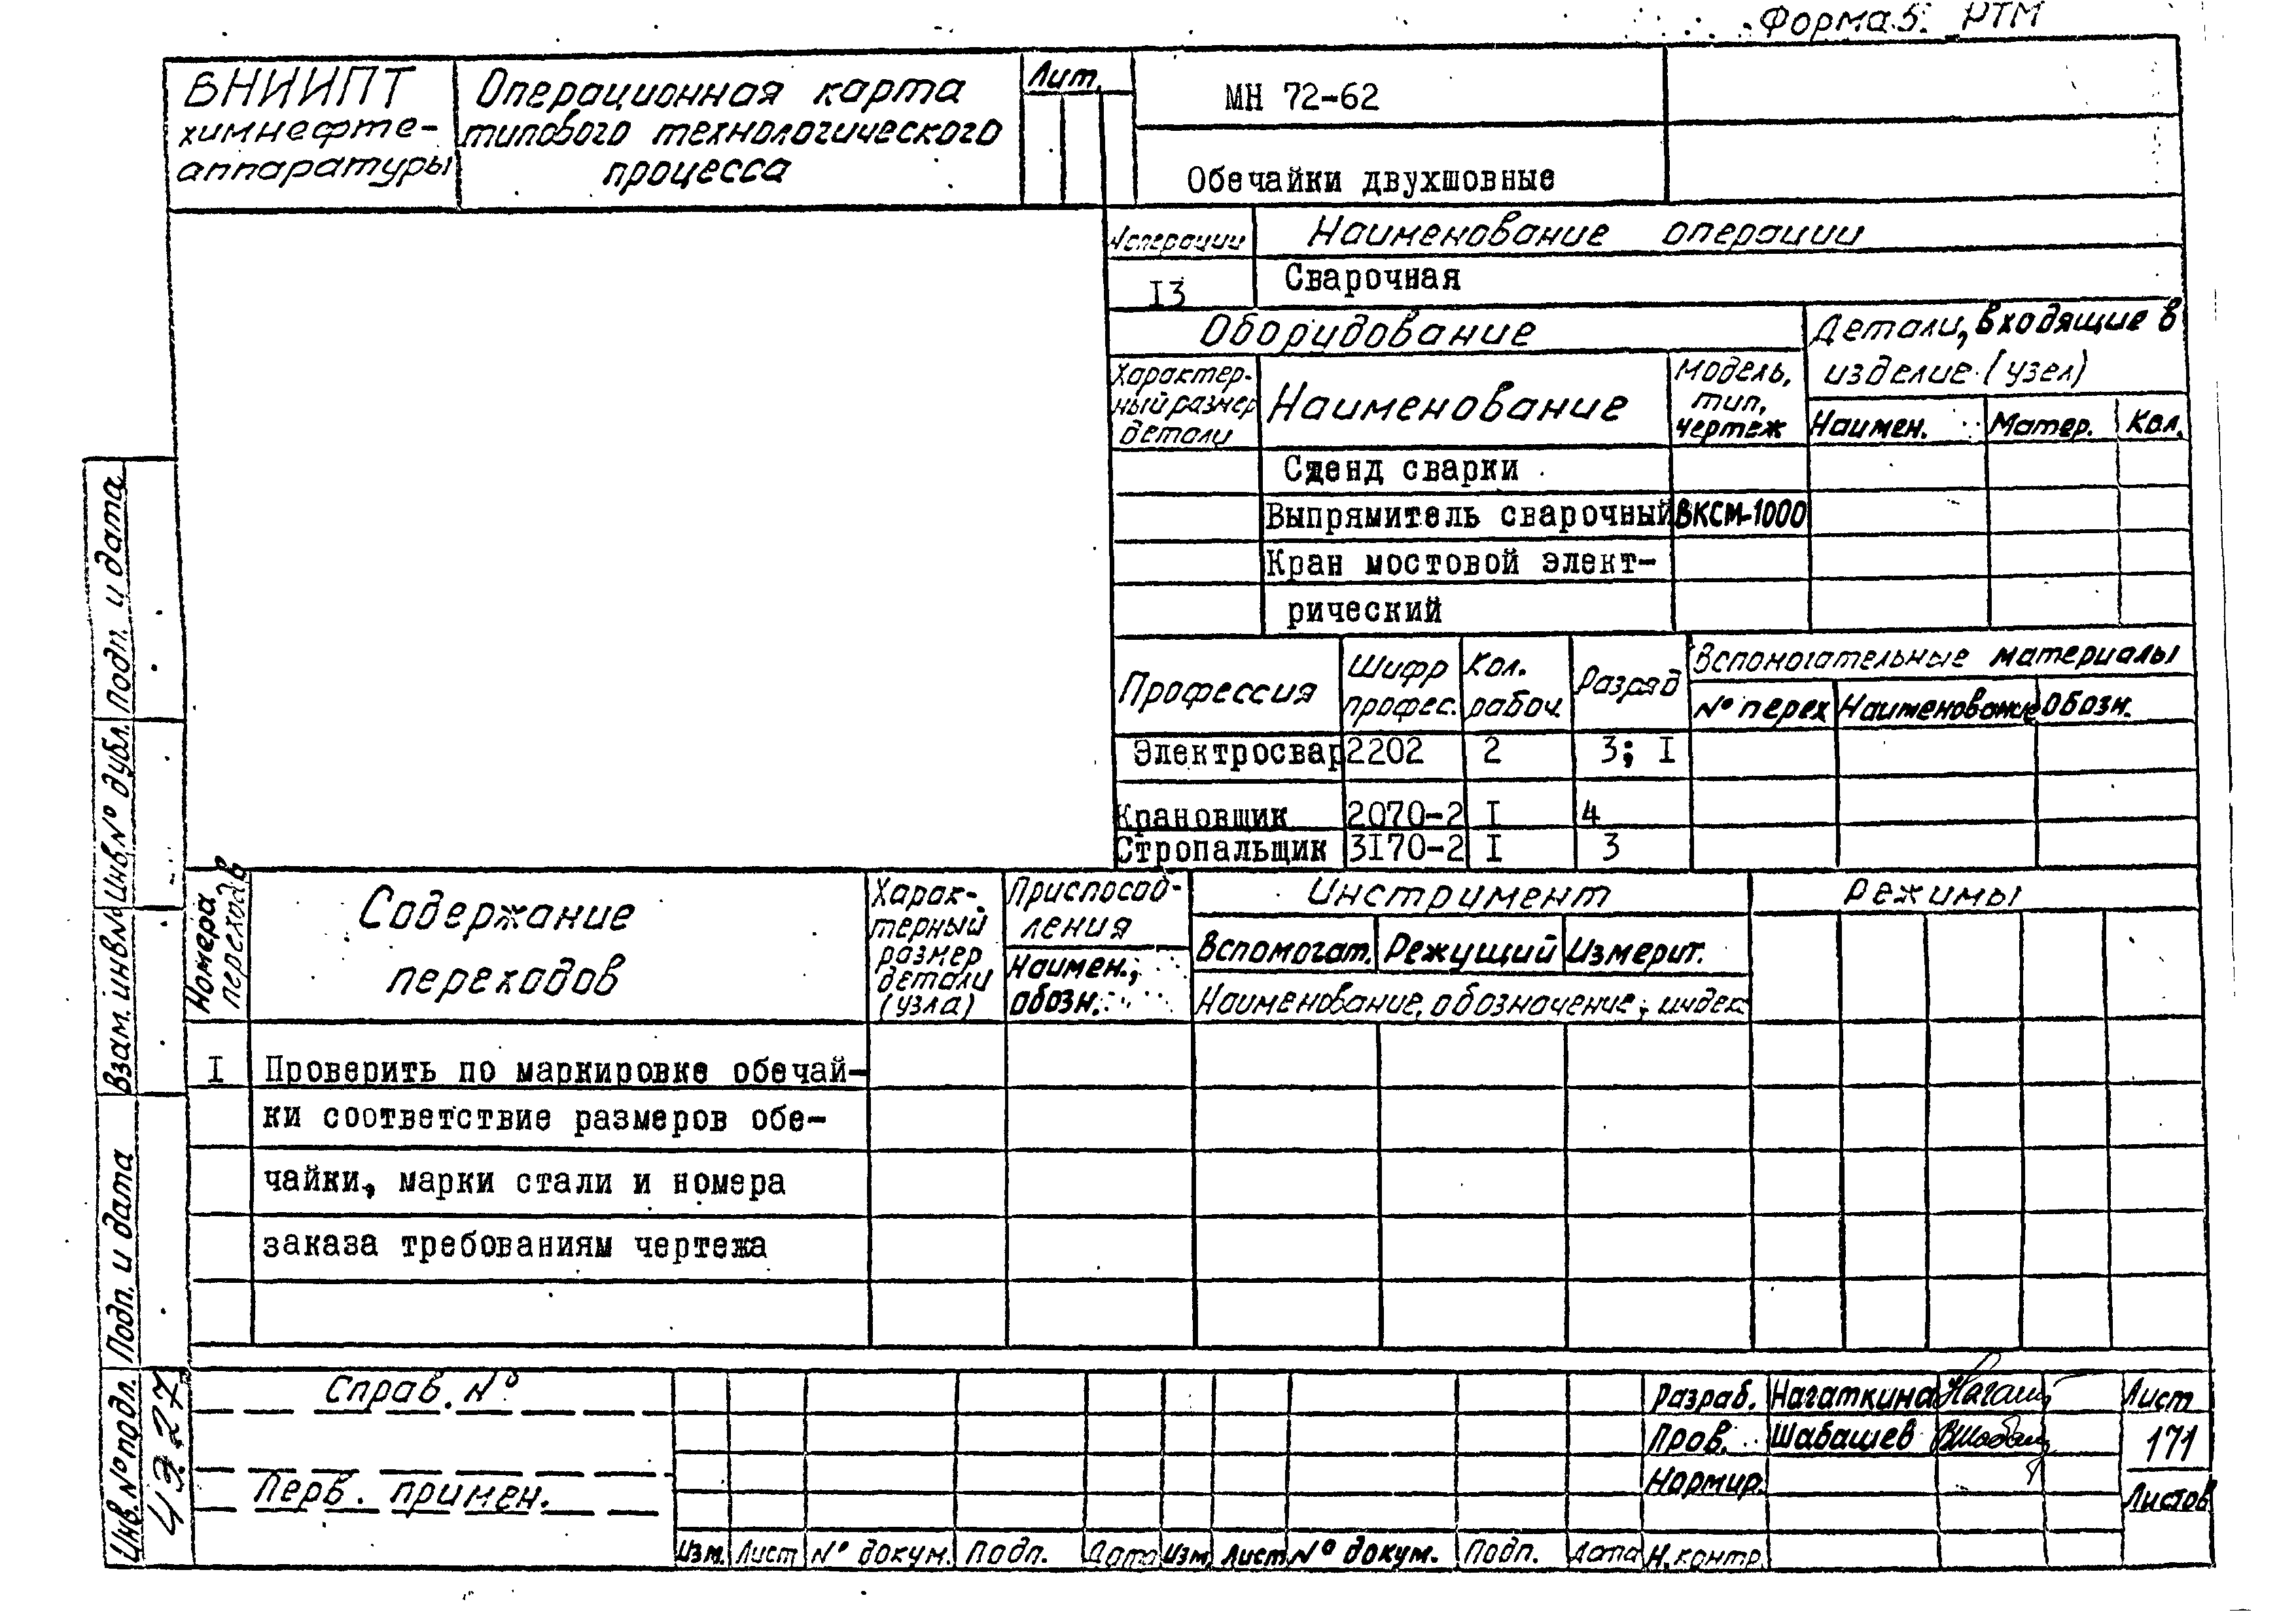 Форма 5. РТМ
ВНИИПТ
химнефте-
аппаратуры
Операционная карта
типового технологического
процесса
Лит.
МН 72-62
Обечайки двухшовные
№ операции
Наименование операции
I3
Сварочная
Оборудование
Детали, входящие в
изделие (узел)
Характер-
ный размер
детали
Наименование
Модель,
тип,
чертеж
Наимен.
Матер.
Кол.
Стенд сварки
Выпрямитель сварочный ВКСМ-1000
Кран мостовой элект-
рический
Профессия
Шифр
профес.
Кол.
рабоч.
Разряд
Вспомогательные материалы
№ перех
Наименование
Обозн.
Электросвар 2202 2 3; I
Крановщик 2070-2 I 4
Стропальщик 3I70-2 I 3
Номера
переходов
Содержание
переходов
Харак-
терный
размер
детали
(узла)
Приспособ-
ления
Наимен.,
обозн.
Инструмент
Вспомогат.
Режущий
Измерит.
Наименование, обозначение, индекс
Режимы
I Проверить по маркировке обечай-
ки соответствие размеров обе-
чайки, марки стали и номера
заказа требованиям чертежа
Справ. №
Перв. примен.
Изм. Лист № докум. Подп. Дата Изм. Лист № докум. Подп. Дата Н. контр.
Разраб. Нагаткина
Пров. Шабашев
Нормир.
Лист
171
Листов
Подп. и дата
Инв. № дубл.
Взам. инв. №
Подп. и дата
Инв. № подл.
43927